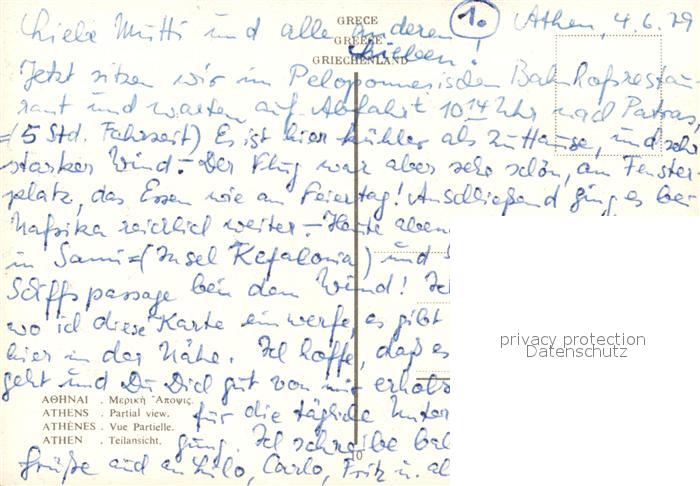 GRECE
GREECE
GRIECHENLAND
1.
Athen, 4.6.79
Liebe Mutti und alle anderen
Lieben!
Jetzt sitzen wir im Peloponnesischen Bahnhofrestau
rant und warten auf Abfahrt 10 14 Uhr nach Patras,
(5 Std. Fahrzeit) Es ist hier kühler als zu Hause, und sehr
starker Wind.- Der Flug war aber sehr schön, am Fenster-
platz, das Essen wie am Feiertag! Anschließend ging es bei
Nafsika reichlich weiter.- Heute aben
in Sami=(Insel Kefalonia) und
Schiffspassage bei dem Wind! Ic
wo ich diese Karte einwerfe, es gibt
hier in der Nähe. Ich hoffe, daß es
geht und Du Dich gut von mir erhols
für die tägliche Unter
gung. Ich schreibe bal
Grüße auch an Lilo, Carlo, Fritz u. al
ΑΘΗΝΑΙ . Μερική Ἄποψις.
ATHENS . Partial view.
ATHÈNES . Vue Partielle.
ATHEN . Teilansicht.
10
privacy protection
Datenschutz